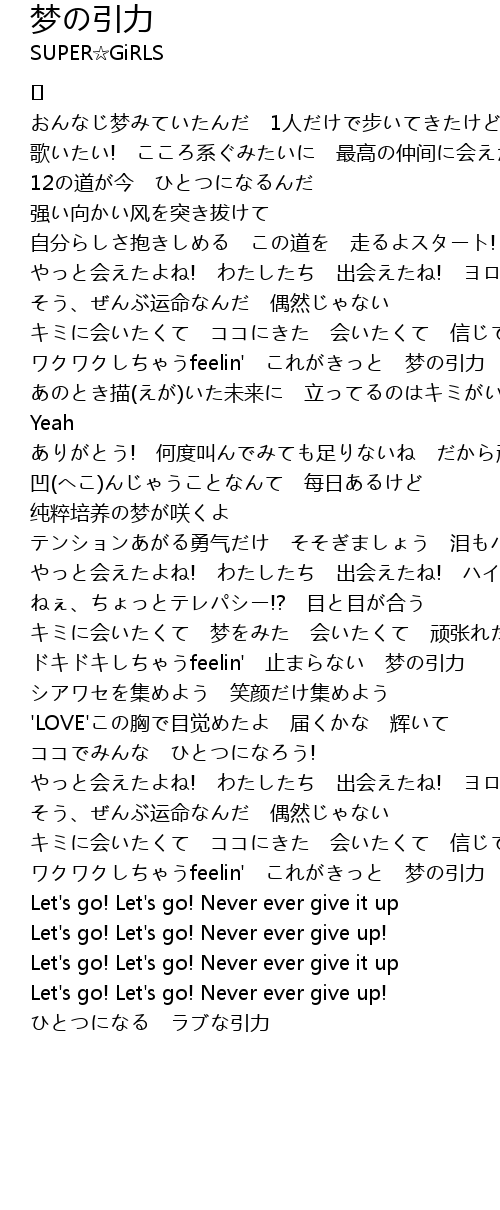 梦の引力
SUPER☆GiRLS
[]
おんなじ梦みていたんだ　1人だけで歩いてきたけど
歌いたい!　こころ系ぐみたいに　最高の仲间に会え
12の道が今　ひとつになるんだ
强い向かい风を突き拔けて
自分らしさ抱きしめる　この道を　走るよスタート!
やっと会えたよね!　わたしたち　出会えたね!　ヨロ
そう、ぜんぶ运命なんだ　偶然じゃない
キミに会いたくて　ココにきた　会いたくて　信じて
ワクワクしちゃうfeelin'　これがきっと　梦の引力
あのとき描(えが)いた未来に　立ってるのはキミがい
Yeah
ありがとう!　何度叫んでみても足りないね　だから
凹(へこ)んじゃうことなんて　每日あるけど
纯粹培养の梦が咲くよ
テンションあがる勇气だけ　そそぎましょう　泪も
やっと会えたよね!　わたしたち　出会えたね!　ハイ
ねぇ、ちょっとテレパシー!?　目と目が合う
キミに会いたくて　梦をみた　会いたくて　顽张れ
ドキドキしちゃうfeelin'　止まらない　梦の引力
シアワセを集めよう　笑颜だけ集めよう
'LOVE'この胸で目觉めたよ　届くかな　辉いて
ココでみんな　ひとつになろう!
やっと会えたよね!　わたしたち　出会えたね!　ヨロ
そう、ぜんぶ运命なんだ　偶然じゃない
キミに会いたくて　ココにきた　会いたくて　信じて
ワクワクしちゃうfeelin'　これがきっと　梦の引力
Let's go! Let's go! Never ever give it up
Let's go! Let's go! Never ever give up!
Let's go! Let's go! Never ever give it up
Let's go! Let's go! Never ever give up!
ひとつになる　ラブな引力